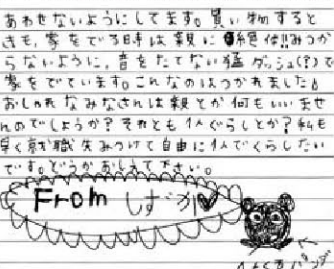 あわせないようにしてます。買い物すると
きも、家をでる時は親に絶体!!みつか
らないように、音をたてない猛ダッシュ(?)で
家をでています。これなのはつかれました。
おしゃれなみなさんは親とか何もいいませ
んのでしょうか?それとも1人ぐらしとか?私も
早く就職先みつけて自由に1人でくらしたい
です。どうかおしえて下さい。
From しずか♥
パンダ